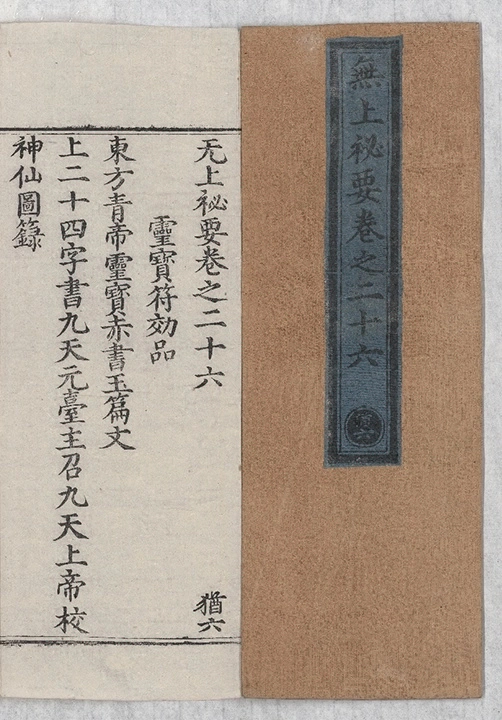 無上祕要卷之二十六
无上祕要卷之二十六
猶六
靈寶符効品
東方青帝靈寶赤書玉篇文
上二十四字書九天元臺主召九天上帝校
神仙圖籙